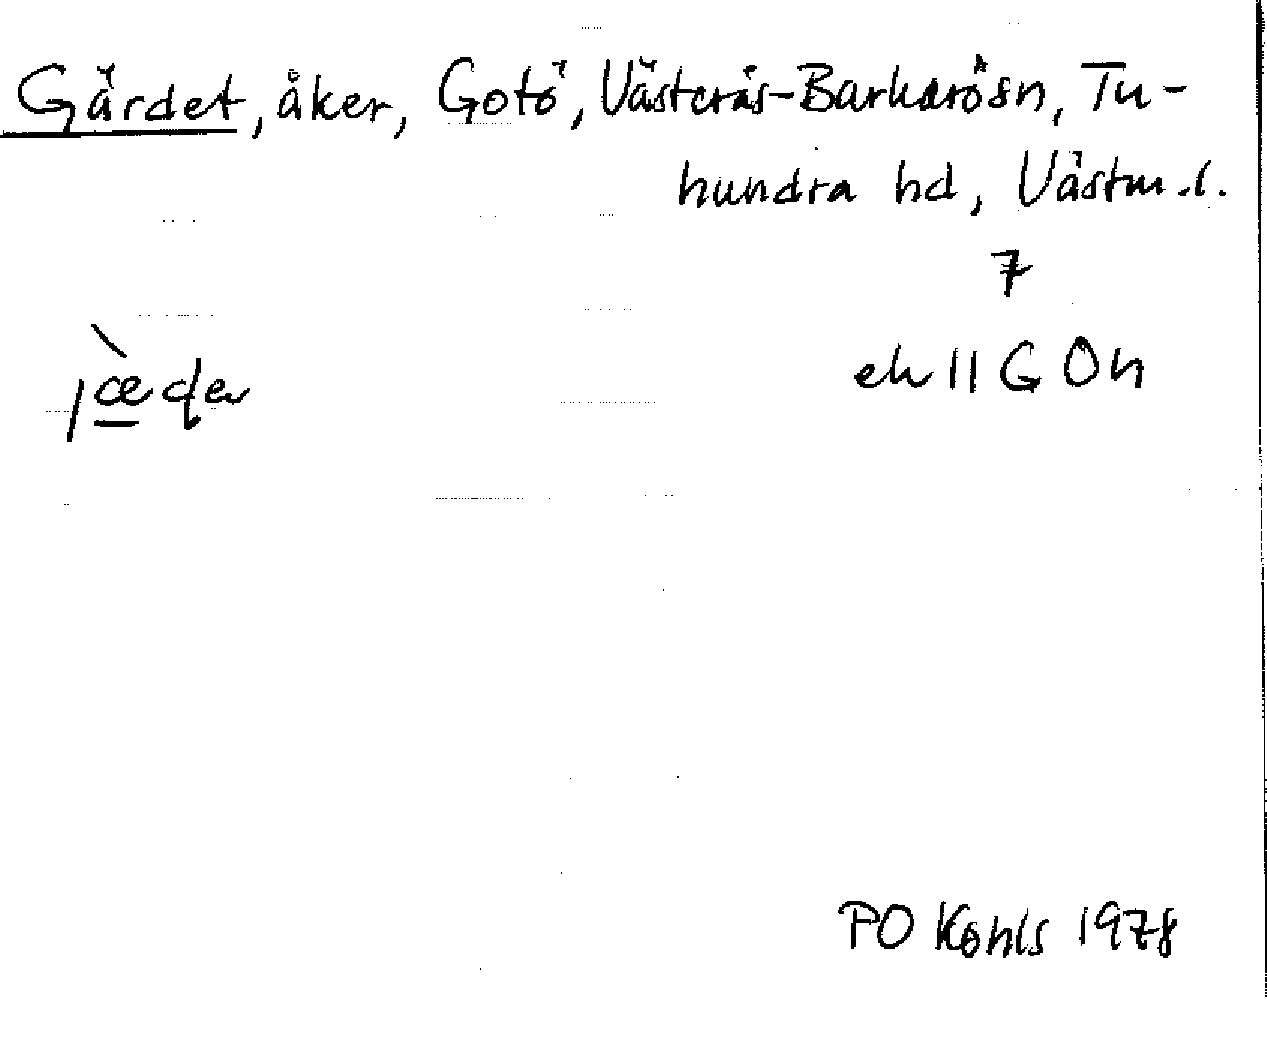 Gärdet, åker, Gotö, Västerås-Barkarösn, Tu-
hundra hd, Västm.l.
7
ek 11 G Ön
PO Kohls 1978